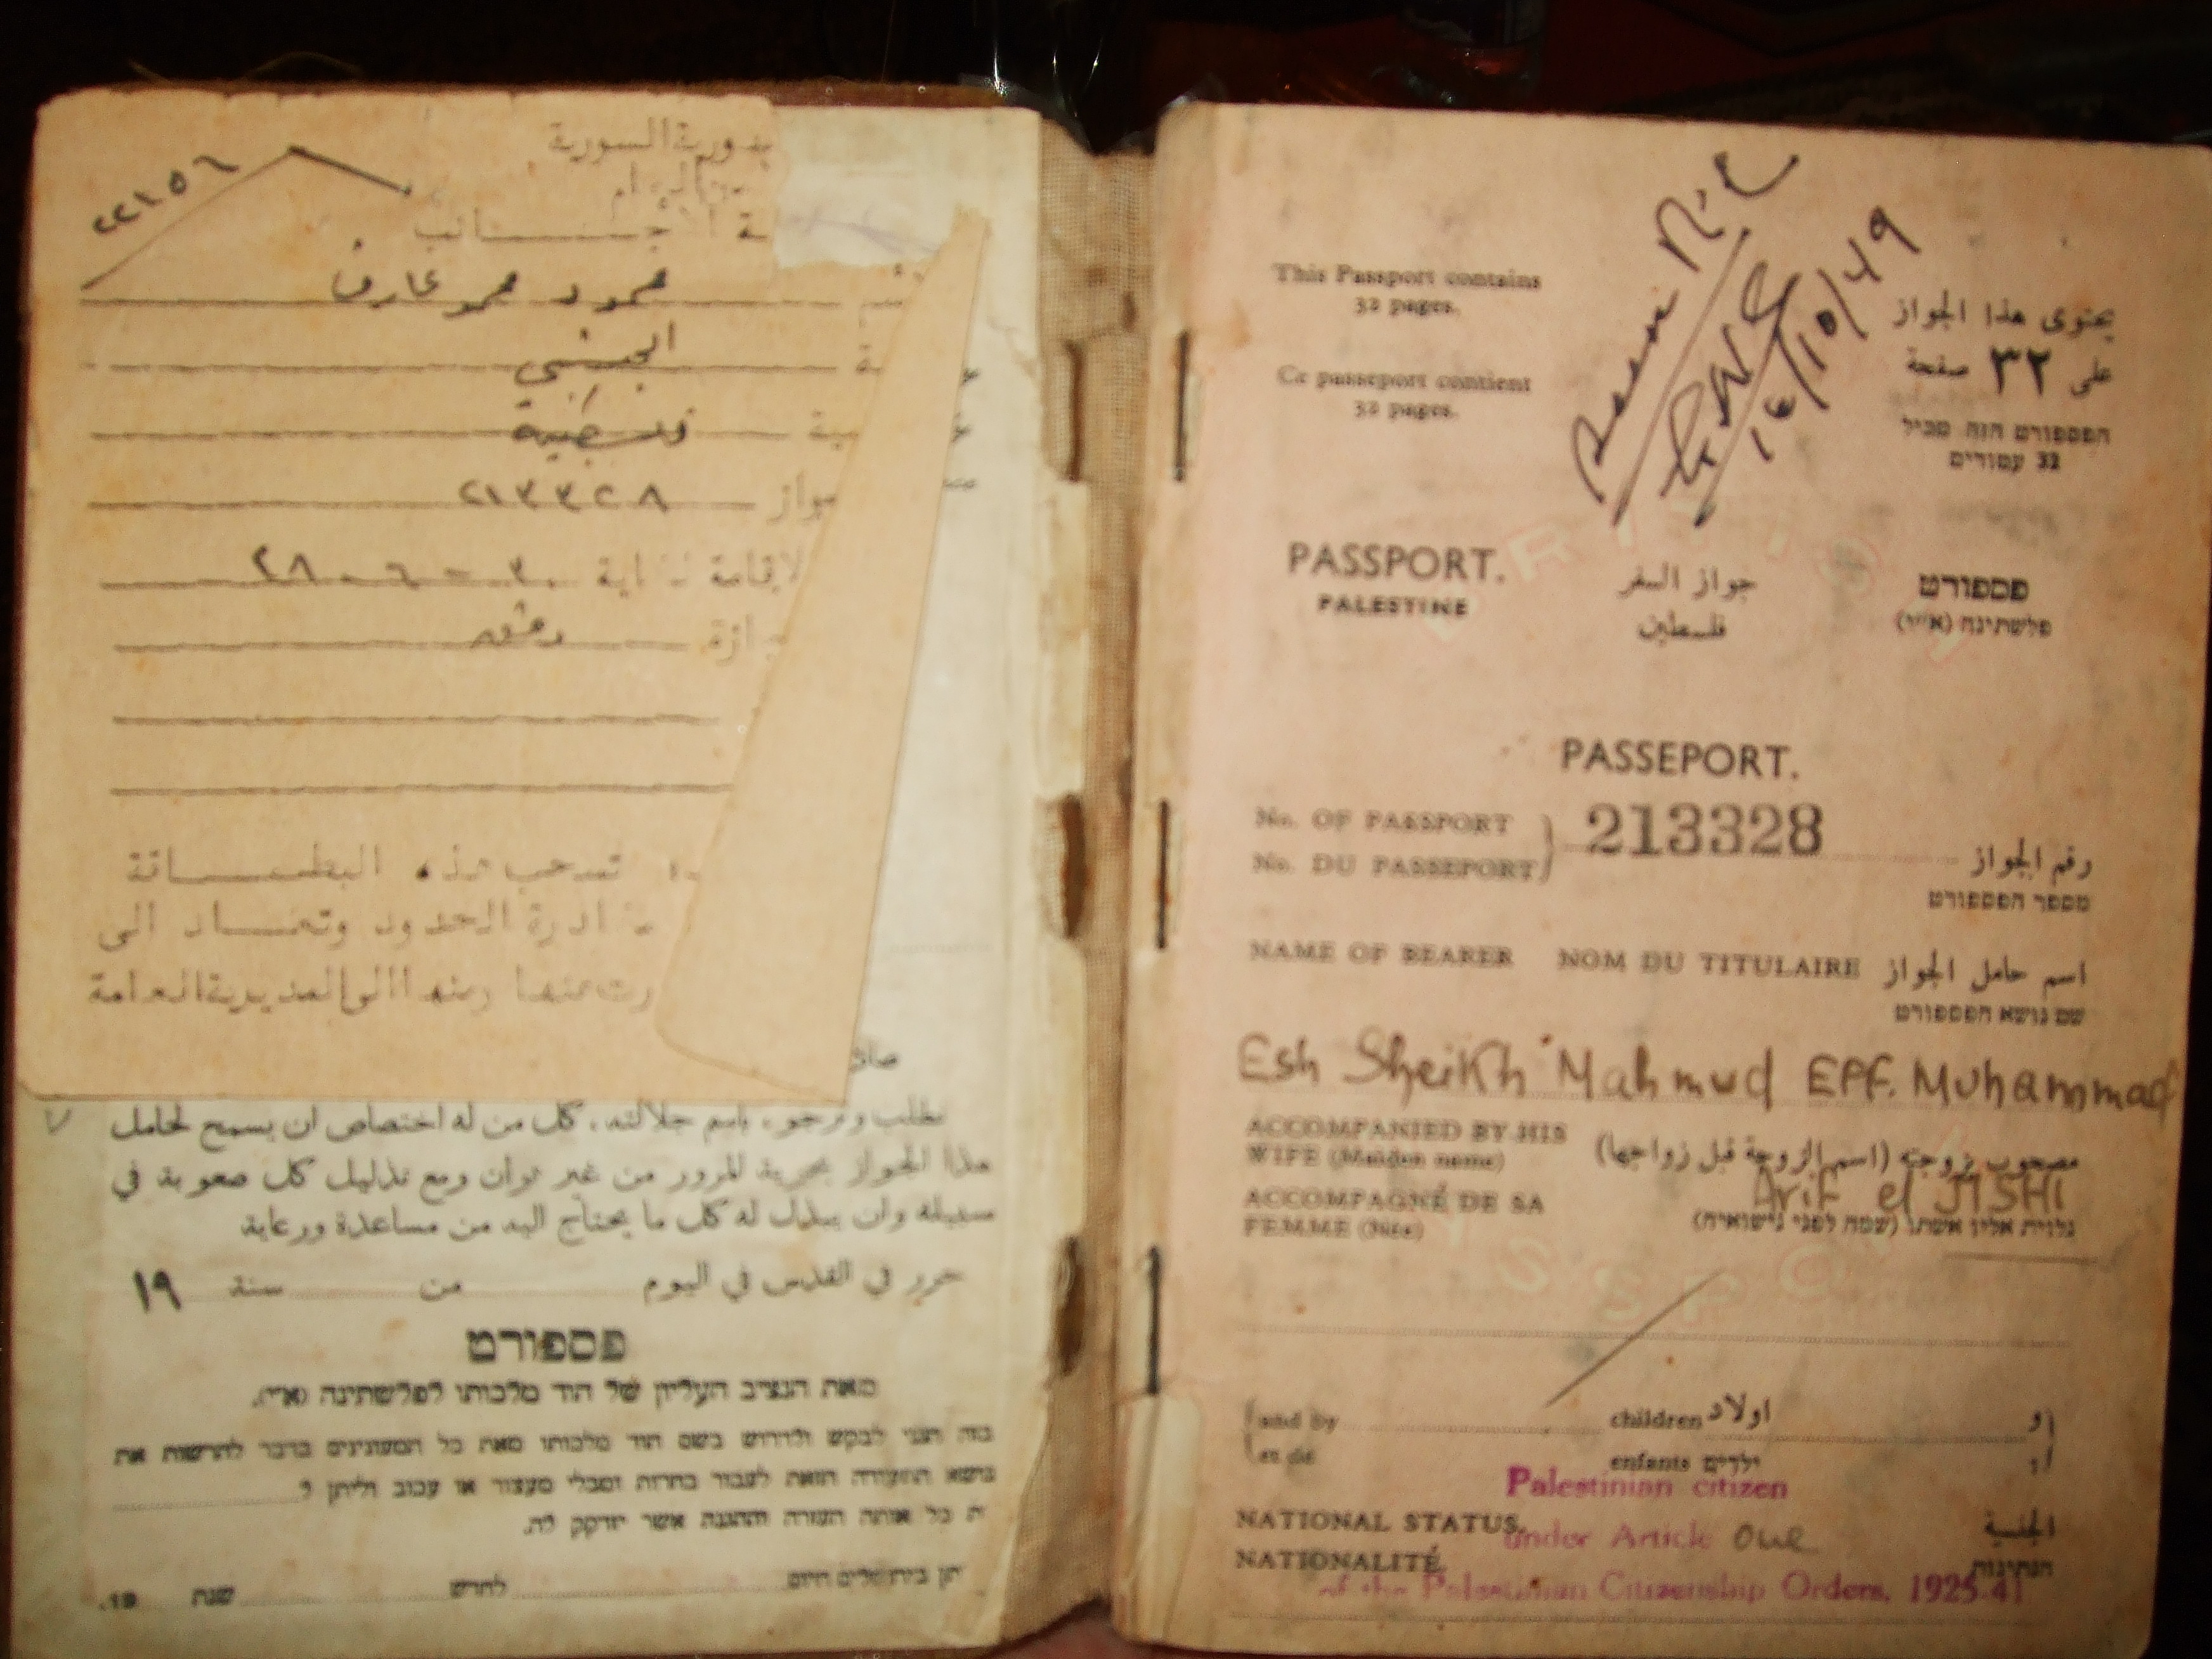 ٢٢١٥٦
السورية
محمود محمد عارف
الجشي
فلسطينية
٢١٣٣٢٨
٣٠ - ٦ - ٤٨
دمشق
تسحب هذه البطـــــاقة
الحدود وتعـــاد الى
العامة
نطلب ونرجو، باسم جلالته، كل من له اختصاص ان يسمح لحامل
هذا الجواز بحرية المرور من غير توان ومع تذليل كل صعوبة في
سبيله وان يبذل له كل ما يحتاج اليه من مساعدة ورعاية
حرر في القدس في اليوم من سنة ١٩
פספורט
מאת הנציב העליון של הוד מלכותו לפלשתינה (א״י).
הנני לבקש ולדרוש בשם הוד מלכותו מאת כל המעונינים בדבר להרשות את
נושא התעודה הזאת לעבור בחרות ומבלי מעצור או עכוב וליתן ל
כל אותה העזרה וההגנה אשר יזדקק לה.
לחדש שנת 19.
16/10/49
This Passport contains
32 pages.
Ce passeport contient
32 pages.
يحتوى هذا الجواز
على ٣٢ صفحة
הפספורט הזה מכיל
32 עמודים
PASSPORT.
PALESTINE
جواز السفر
فلسطين
פספורט
פלשתינה (א״י)
PASSEPORT.
No. OF PASSPORT
No. DU PASSEPORT
213328
رقم الجواز
מספר הפספורט
NAME OF BEARER NOM DU TITULAIRE اسم حامل الجواز
שם נושא הפספורט
Esh Sheikh Mahmud Eff. Muhammad
ACCOMPANIED BY HIS
WIFE (Maiden name)
مصحوب بزوجته (اسم الزوجة قبل زواجها)
Arif el JISHI
ACCOMPAGNÉ DE SA
FEMME (Née)
נלוית אליו אשתו (שמה לפני נישואיה)
and by children اولاد و
et de enfants ילדים ו
Palestinian citizen
NATIONAL STATUS. under Article One الجنسية
NATIONALITÉ הנתינות
of the Palestinian Citizenship Orders, 1925-41